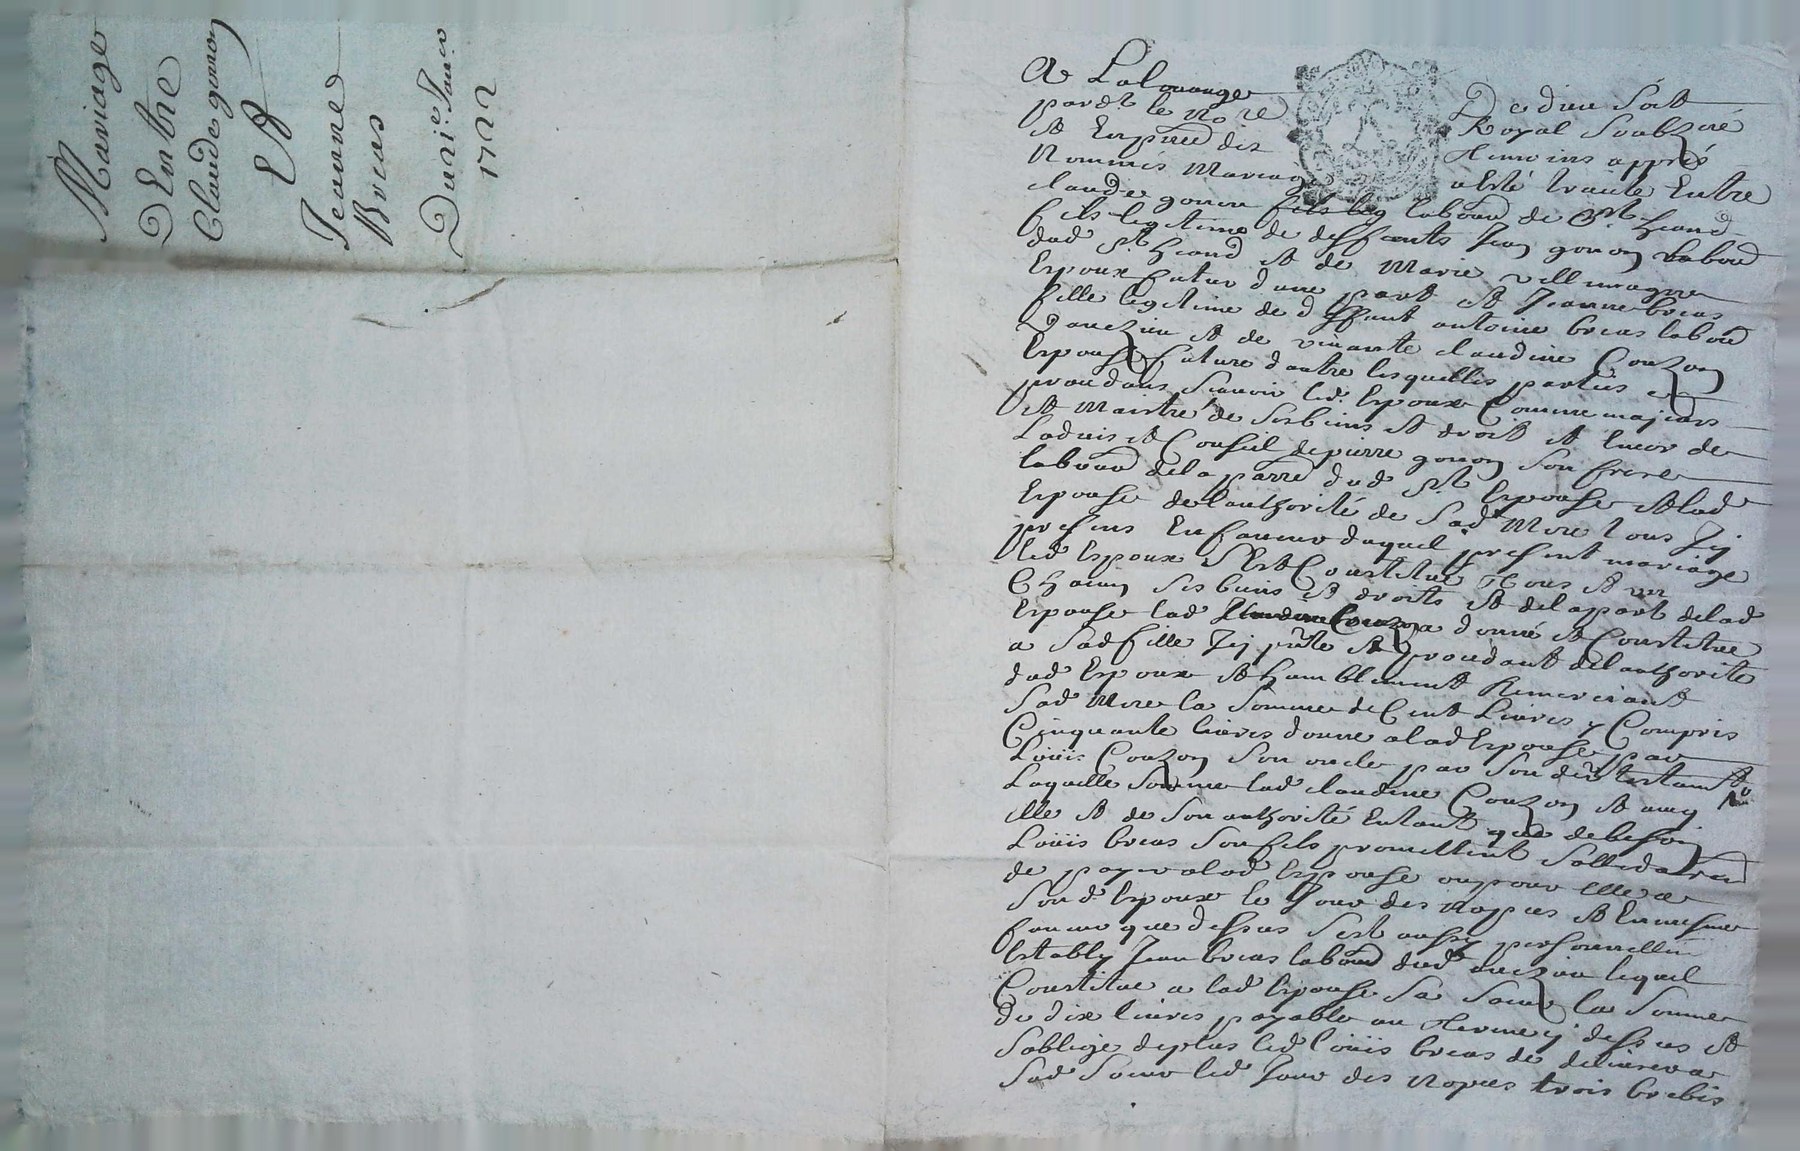 Mariage
D'Entre
Claude gonon
Et
Jeanne
Breas
Du 21e Janv.
1722
A Lalouange De dieu Soit
pardt le No.re Royal Soubzné
Et En pnce des temoins apprés
Nommés Mariage a esté traitté Entre
claude gonon fils leg labour de St. heand
fils legitime de deffants Jean gonon labour
dud St. heand et de Marie villemagne
Espoux futur d'une part et Jeanne breas
fille legitime de deffunt antoine breas labour
D'aveizieu et de vivante claudine Couzon
Espouse future d'autre lesquelles parties
procedans scavoir led. Espoux Comme majeur
et Maistre de ses biens et droit et Encor de
Ladvis et Conseil de pierre gonon Son frere
labour de la parre dud St. et lad
Espouse de l'authorité de Sad Mere tous Icy
presens En faveur duquel present mariage
led Espoux s'Est Constitué tous et un
Chacun ses biens et droits et de la part de lad
Espouse lad Claudine Couzon a donné et Constitué
a Sad fille Icy pnte et procedant de l'authorité
dud Espoux et humblement Remerciant
Sad Mere la Somme de Cent Livres y Compris
Cinquante livres donné a lad Espouse par
Louis Couzon Son oncle par Son der testamt
Laquelle Somme lad claudine Couzon et avec
Elle et de Son authorité Entant que de besoin
Louis breas Son fils promettent Sollidairemt
de payer a lad Espouse ou pour Elle a
Son d. Espoux le Jour des Nopces et En mesme
faveur que dessus s'est aussy personnellemt
Estably Jean breas labour dud aveizieu lequel
Constitue a lad Espouse Sa Soeur la Somme
de dix livres payable au terme cy dessus et
S'oblige de plus led Louis breas de delivrer a
Sad Soeur led Jour des Nopces trois brebis